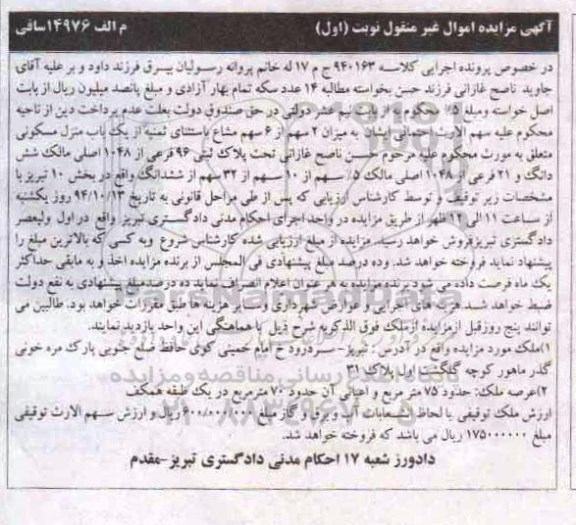 آگهی مزایده اموال غیر منقول نوبت (اول) م الف ۱۴۹۷۶ساقی
در خصوص پرونده اجرایی کلاسه ۹۴۰۱۶۳ ج م ۱۷ له خانم پروانه رسولیان بیرق فرزند داود و بر علیه آقای
جاوید ناصح غازانی فرزند حسن بخواسته مطالبه ۱۴ عدد سکه تمام بهار آزادی و مبلغ پانصد میلیون ریال از بابت
اصل خواسته ومبلغ ۵٪ محکوم به از بابت نیم عشر دولتی در حق صندوق دولت بعلت عدم پرداخت دین از ناحیه
محکوم علیه سهم الارث احتمالی ایشان به میزان ۲ سهم از ۶ سهم مشاع باستثنای ثمنیه از یک باب منزل مسکونی
متعلق به مورث محکوم علیه مرحوم حسن ناصح غازانی تحت پلاک ثبتی ۹۶ فرعی از ۱۰۴۸ اصلی مالک شش
دانگ و ۲۱ فرعی از ۱۰۴۸ اصلی مالک ۵٪ سهم از ۱۰ سهم از ۳۲ سهم از ششدانگ واقع در بخش ۱۰ تبریز با
مشخصات زیر توقیف و توسط کارشناس ارزیابی که پس از طی مراحل قانونی به تاریخ ۹۴/۱۰/۱۳ روز یکشنبه
از ساعت ۱۱ الی ۱۲ ظهر از طریق مزایده در واحد اجرای احکام مدنی دادگستری تبریز واقع در اول ولیعصر
دادگستری تبریزفروش خواهد رسید. مزایده از مبلغ ارزیابی شده کارشناس شروع وبه کسی که بالاترین مبلغ را
پیشنهاد نماید فروخته خواهد شد. وده درصد مبلغ پیشنهادی فی المجلس از برنده مزایده اخذ و به مابقی حداکثر
یک ماه فرصت داده می شود برنده مزایده به هر عنوان اعلام انصراف نماید ده درصدمبلغ پیشنهادی به نفع دولت
ضبط خواهد شد. هزینه های اجرایی و عوارض شهرداری وسایر هزینه ها طبق مقررات خواهد بود. طالبین می
توانند پنج روزقبل ازمزایده ازملک فوق الذکربه شرح ذیل با هماهنگی این واحد بازدید نمایند.
۱)ملک مورد مزایده واقع در آدرس : تبریز- سردرود خ امام خمینی کوی حافظ ضلع جنوبی پارک مره خونی
گذر ماهور کوچه گلگشت اول پلاک ۳۱
۲)عرصه ملک: حدود ۷۵ متر مربع و اعیانی آن حدود ۷۰ مترمربع در یک طبقه همکف
ارزش ملک توقیفی با لحاظ انشعابات آب و برق و گاز مبلغ ۶۰۰/۰۰۰/۰۰۰ ریال و ارزش سهم الارث توقیفی
مبلغ ۱۷۵۰۰۰۰۰۰ ریال می باشد که فروخته خواهد شد.
دادورز شعبه ۱۷ احکام مدنی دادگستری تبریز-مقدم
پایگاه اطلاع رسانی مناقصه و مزایده